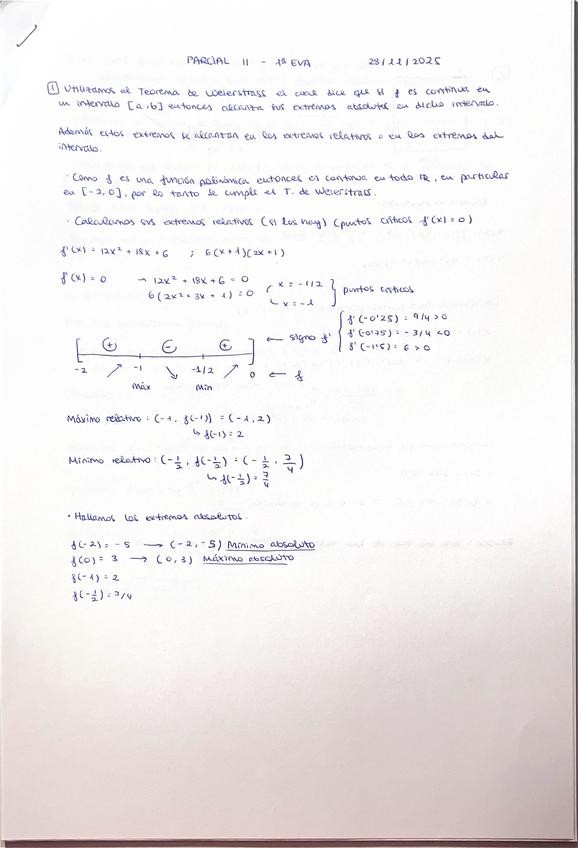 PARCIAL II - 1ª EVA 28/11/2025
1 Utilizamos el Teorema de Weierstrass el cual dice que si f es continua en
un intervalo [a,b] entonces alcanza sus extremos absolutos en dicho intervalo.
Además estos extremos se alcanzan en los extremos relativos o en los extremos del
intervalo.
· Como f es una función polinómica entonces es continua en todo ℝ, en particular
en [-2,0], por lo tanto se cumple el T. de Weierstrass.
· Calculamos sus extremos relativos (si los hay) (puntos críticos f'(x)=0)
f'(x) = 12x² + 18x + 6 ; 6(x+1)(2x+1)
f'(x) = 0 → 12x² + 18x + 6 = 0 x = -1/2
6(2x² + 3x + 1) = 0 x = -1 puntos críticos
+ - + ← signo f' f'(-0'25) = 9/4 > 0
f'(-0'75) = -3/4 < 0
f'(-1'5) = 6 > 0
-2 ↗ -1 ↘ -1/2 ↗ 0 ← f
Máx Mín
Máximo relativo: (-1, f(-1)) = (-1, 2)
↳ f(-1) = 2
Mínimo relativo: (-1/2, f(-1/2)) = (-1/2, 7/4)
↳ f(-1/2) = 7/4
· Hallamos los extremos absolutos.
f(-2) = -5 → (-2, -5) Mínimo absoluto
f(0) = 3 → (0, 3) Máximo absoluto
f(-1) = 2
f(-1/2) = 7/4